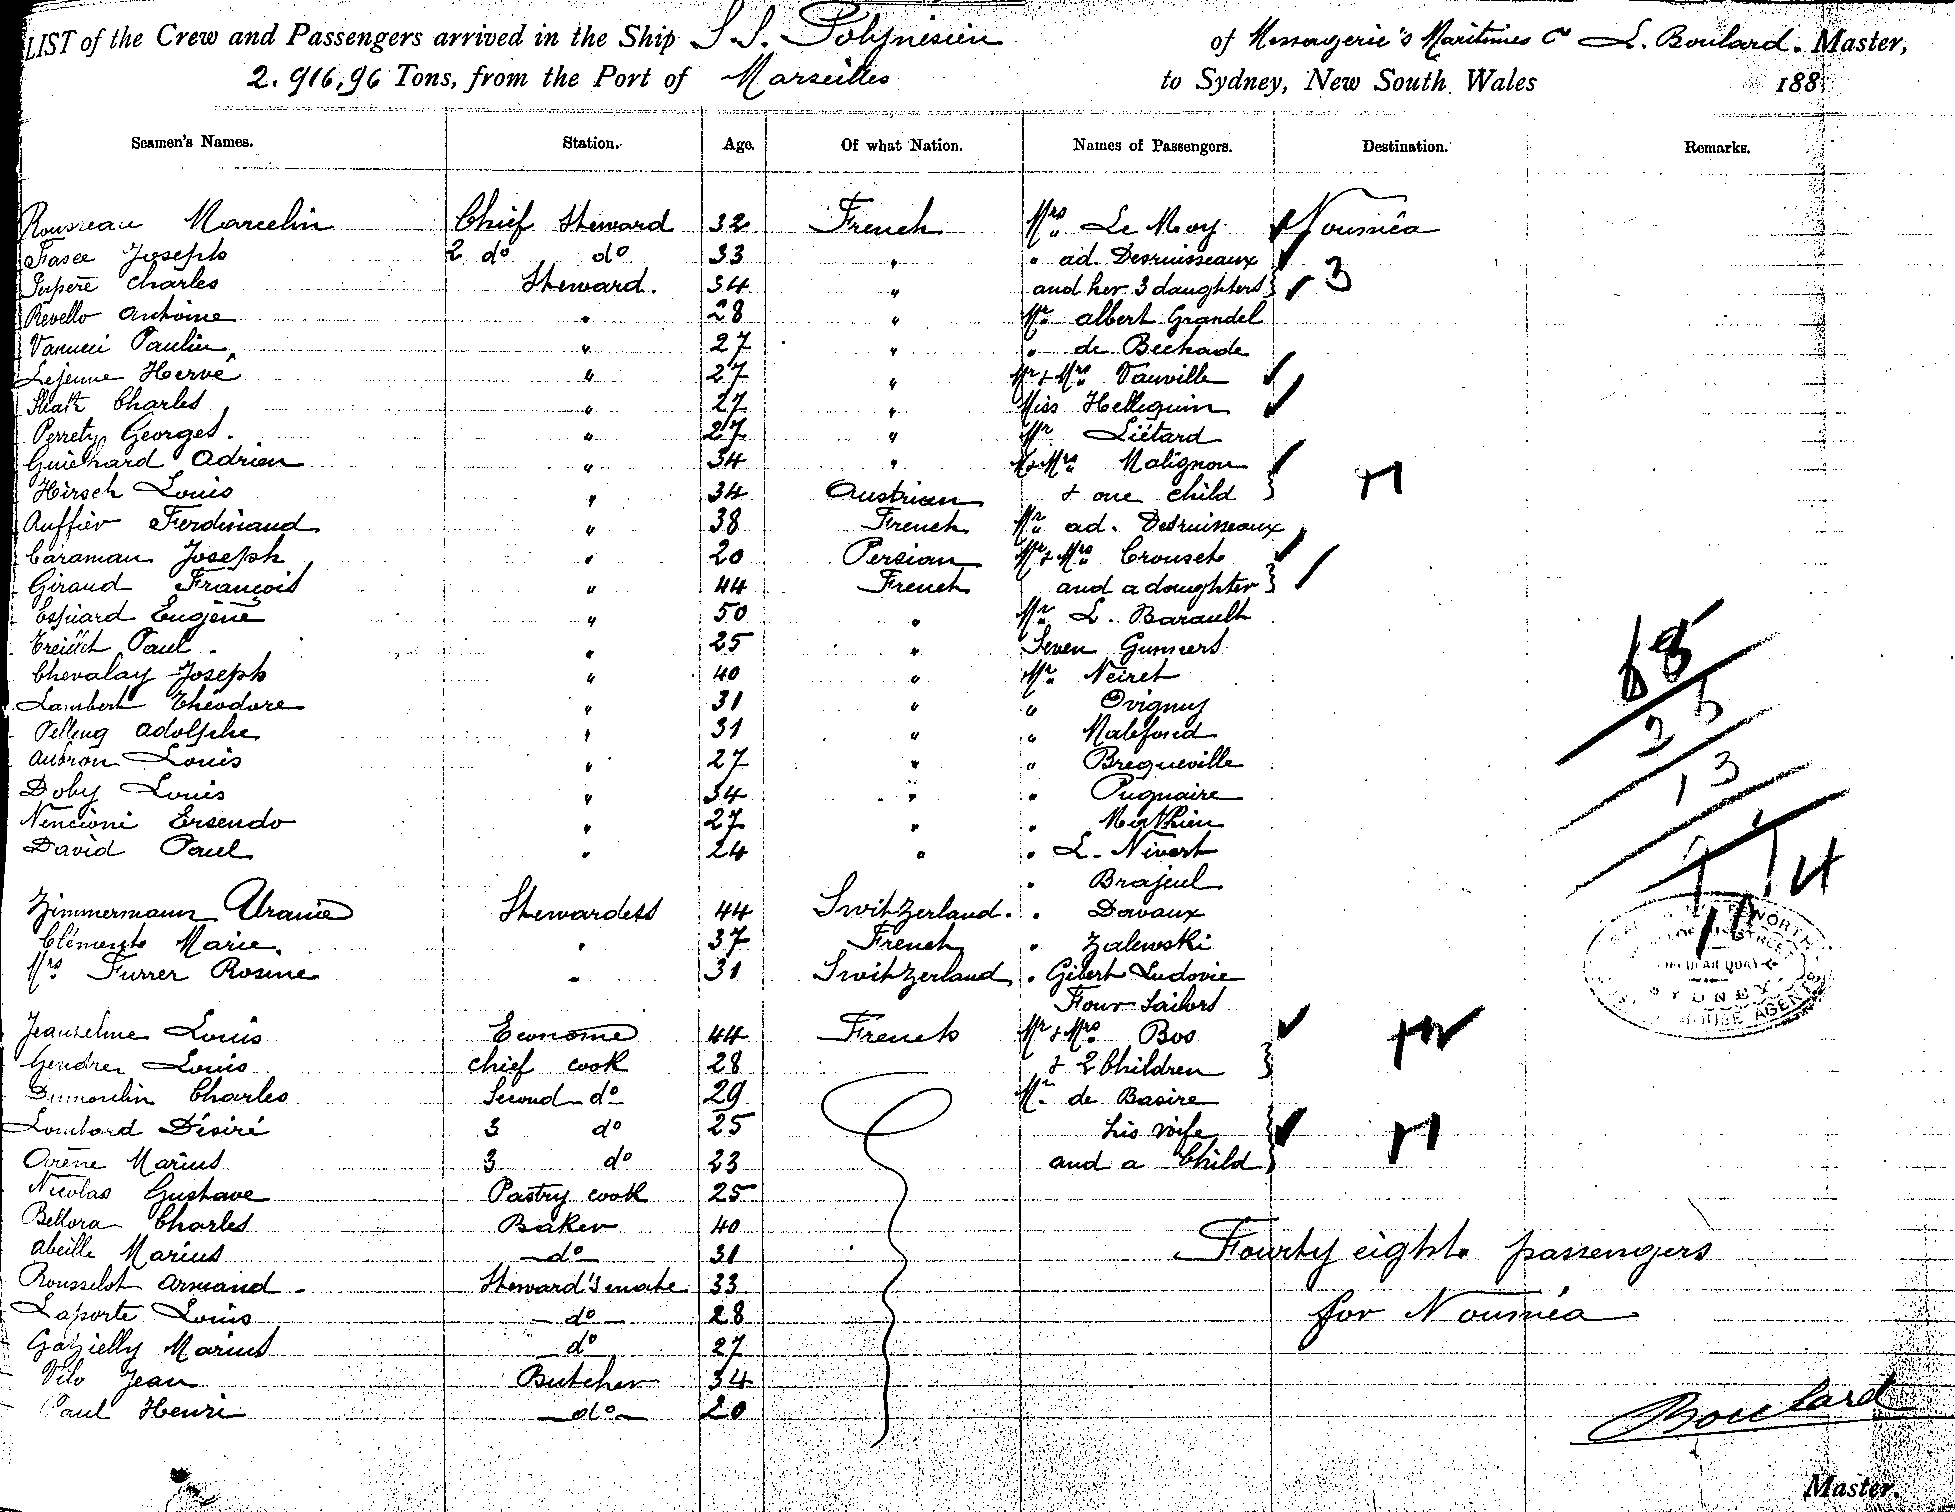 LIST of the Crew and Passengers arrived in the Ship S.S. Polynésien of Messagerie's Maritimes Co L. Boulard. Master,
2.916,96 Tons, from the Port of Marseilles to Sydney, New South Wales 188
Seamen's Names. Station. Age. Of what Nation. Names of Passengers. Destination. Remarks.
Rousseau Marcelin Chief Steward 32 French Mrs Le Moy Nouméa
Fasce Joseph 2 do do 33 " " ad. Desruisseaux
Charles Steward. 34 " and her 3 daughters 3
Revello Antoine " 28 " Mr albert Grandel
Vanucci Paulin " 27 " " de Bechade
Lejeune Hervé " 27 " Mr & Mrs Vauville
Charles " 27 " Miss Hellequin
Perrety Georges. " 27 " Mr Liétard
Guichard Adrien " 34 " Mr & Mrs Malignon
Hirsch Louis " 34 Austrian & one child
Auffier Ferdinand " 38 French Mr ad. Desruisseaux
Caraman Joseph " 20 Persian Mr & Mrs Crouset
Giraud François " 44 French and a daughter
Espiard Eugène " 50 " Mr L. Barault
Paul " 25 " Seven Gunners
Chevalay Joseph " 40 " Mr Neiret
Lambert Théodore " 31 " " Ovigny
Pelleng Adolphe " 31 " "
Aubron Louis " 27 " " Brequeville
Doby Louis " 34 " " Pugnaire
Nencioni Ersendo " 27 " "
David Paul " 24 " " L. Nivert
" Brajeul
Zimmermann Uranie Stewardess 44 Switzerland. " Davaux
Clémente Marie " 37 French " Zalewski
Mrs Furrer Rosine " 31 Switzerland " Gibert Ludovic
Four Sailors
Jeanselme Louis Econome 44 French Mr & Mrs Bos
Gendre Louis chief cook 28 & 2 Children
Dumoulin Charles Second do 29 Mr de Basire
Lombard Désiré 3 do 25 his wife
Arène Marius 3 do 23 and a Child
Nicolas Gustave Pastry cook 25
Bellora Charles Baker 40
Abeille Marius do 31 Fourty eight passengers
Rousselot Armand Steward's mate 33
Laporte Louis do 28 for Nouméa
Gazielly Marius do 27
Vilo Jean Butcher 34
Paul Henri do 20
Boulard
Master.
68
13
14
SYDNEY